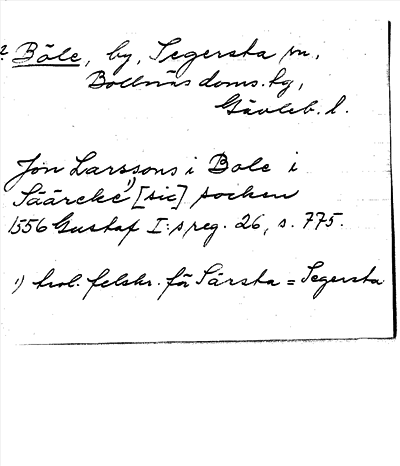 ? Böle, by, Segersta sn,
Bollnäs doms. hg,
Gävleb. l.
Jon Larssons i Bole i
Säärcke¹) [sic] socken
1556 Gustaf I:s reg. 26, s. 775.
¹) trol. felskr. för Särsta = Segersta